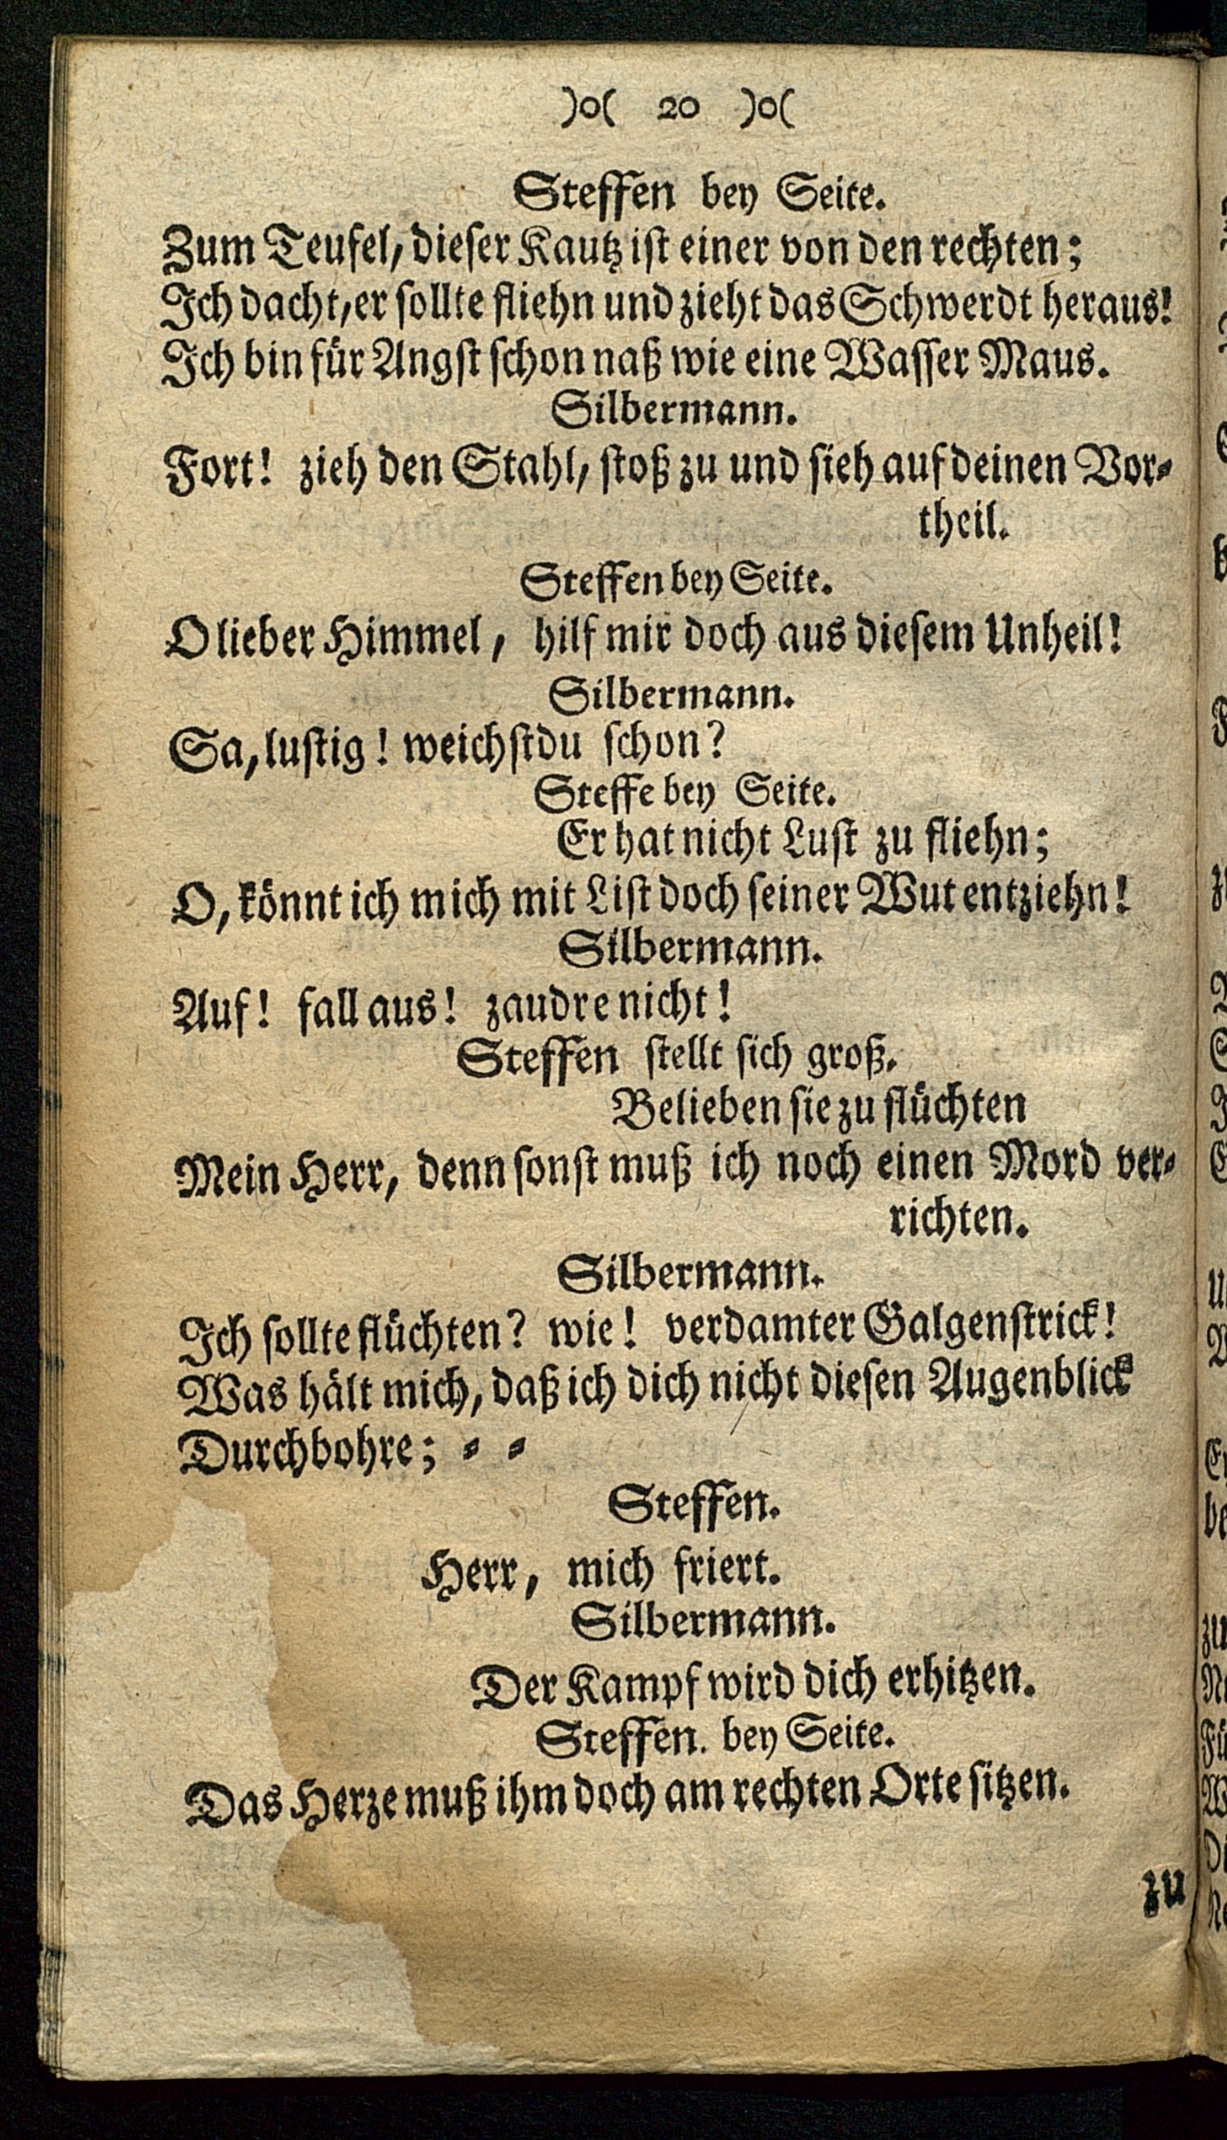 )o( 20 )o(
Steffen bey Seite.
Zum Teufel, dieser Kautz ist einer von den rechten;
Ich dacht, er sollte fliehn und zieht das Schwerdt heraus!
Ich bin für Angst schon naß wie eine Wasser Maus.
Silbermann.
Fort! zieh den Stahl, stoß zu und sieh auf deinen Vor-
theil.
Steffen bey Seite.
O lieber Himmel, hilf mir doch aus diesem Unheil!
Silbermann.
Sa, lustig! weichst du schon?
Steffe bey Seite.
Er hat nicht Lust zu fliehn;
O, könnt ich mich mit List doch seiner Wut entziehn!
Silbermann.
Auf! fall aus! zaudre nicht!
Steffen stellt sich groß.
Belieben sie zu flüchten
Mein Herr, denn sonst muß ich noch einen Mord ver-
richten.
Silbermann.
Ich sollte flüchten? wie! verdamter Galgenstrick!
Was hält mich, daß ich dich nicht diesen Augenblick
Durchbohre; - -
Steffen.
Herr, mich friert.
Silbermann.
Der Kampf wird dich erhitzen.
Steffen. bey Seite.
Das Herze muß ihm doch am rechten Orte sitzen.
zu